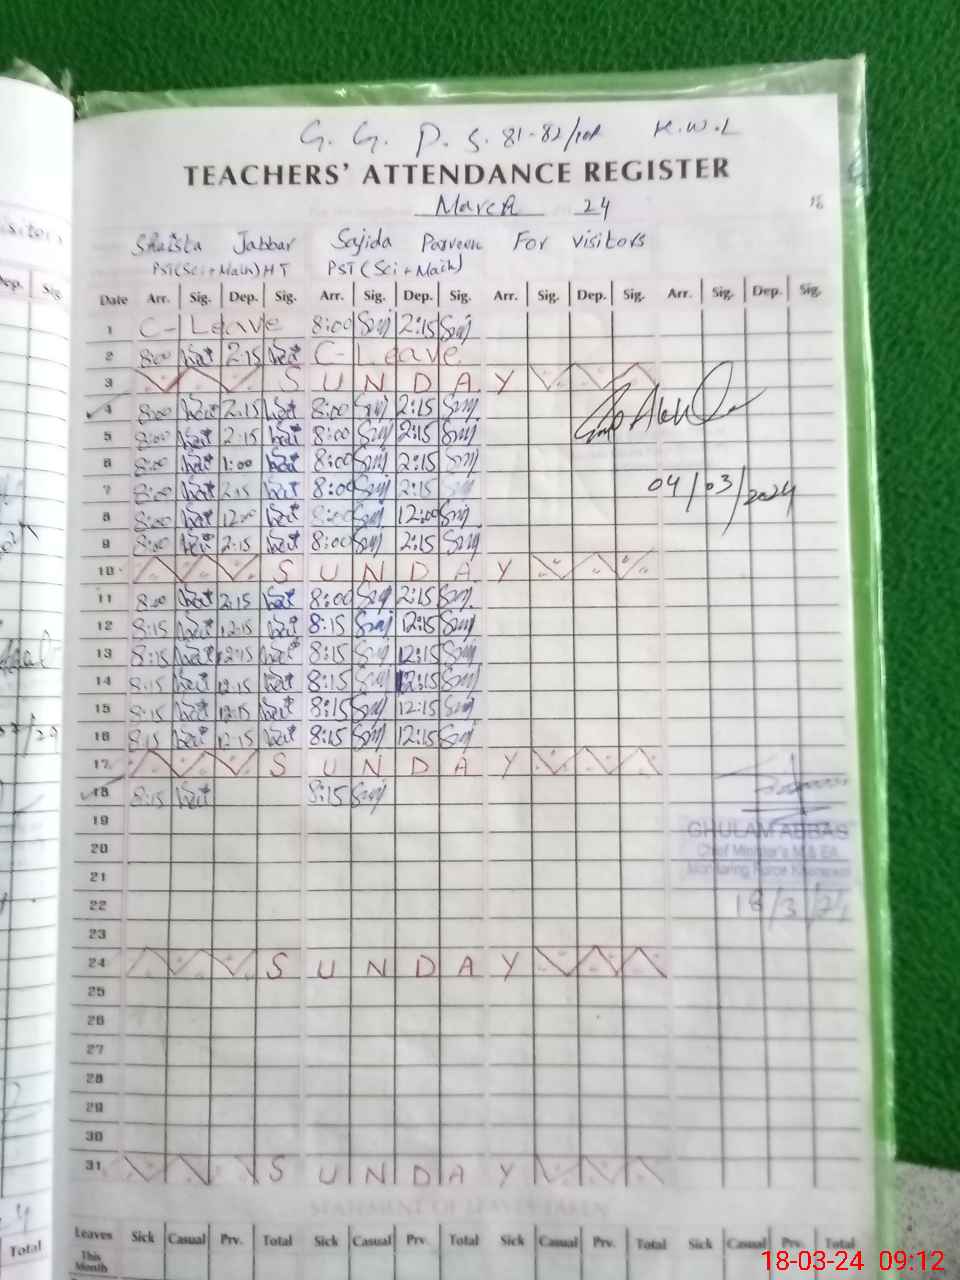 G. G. P. S. 81-82/10R K.W.L
TEACHERS' ATTENDANCE REGISTER
March 24
Shaista Jabbar Sajida Parveen For visitors
PST(Sci+Math)HT PST(Sci+Math)
Date Arr. Sig. Dep. Sig. Arr. Sig. Dep. Sig. Arr. Sig. Dep. Sig. Arr. Sig. Dep. Sig.
1 C-Leave 8:00 2:15
2 8:00 2:15 C-Leave
3 SUNDAY
4 8:00 2:15 8:00 2:15
5 8:00 2:15 8:00 2:15
6 8:00 1:00 8:00 2:15
7 8:00 2:15 8:00 2:15
04/03/2024
8 8:00 12:00 8:00 12:00
9 8:00 2:15 8:00 2:15
10 SUNDAY
11 8:00 2:15 8:00 2:15
12 8:15 12:15 8:15 12:15
13 8:15 12:15 8:15 12:15
14 8:15 12:15 8:15 12:15
15 8:15 12:15 8:15 12:15
16 8:15 12:15 8:15 12:15
17 SUNDAY
18 8:15 8:15
19
GHULAM ABBAS
20
Chief Minister's M & EA
21
Monitoring Force Khanewal
22
18/3/24
23
24 SUNDAY
25
26
27
28
29
30
31 SUNDAY
STATEMENT OF LEAVES TAKEN
Leaves Sick Casual Prv. Total Sick Casual Prv. Total Sick Casual Prv. Total Sick Casual Prv. Total
This Month
Total
18-03-24 09:12